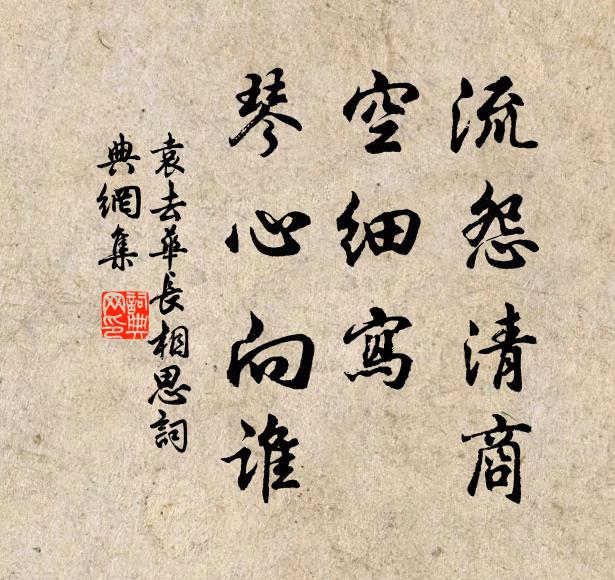 流怨清商
空细寫
琴心向谁
袁去華長相思詞
典網集
詞典網印